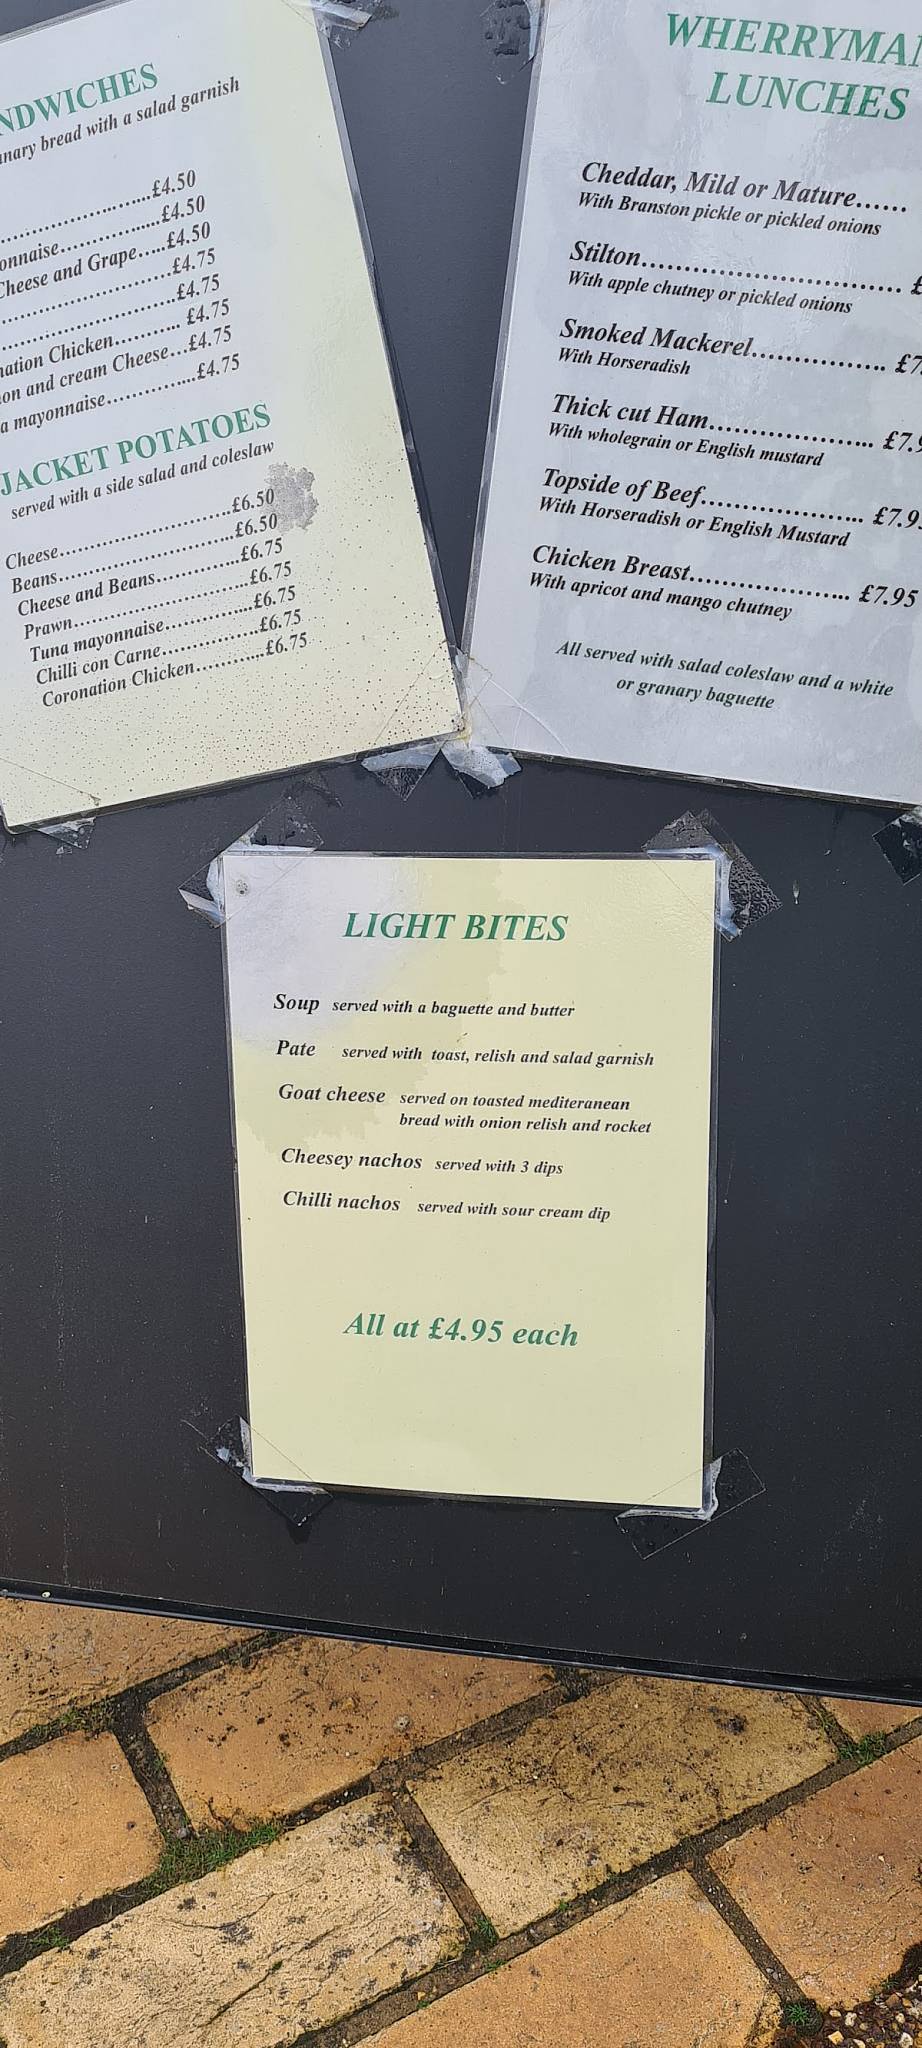 NDWICHES
nary bread with a salad garnish
............................£4.50
onnaise................£4.50
Cheese and Grape.....£4.50
............................£4.75
............................£4.75
nation Chicken.......... £4.75
on and cream Cheese...£4.75
a mayonnaise...............£4.75
JACKET POTATOES
served with a side salad and coleslaw
Cheese............................£6.50
Beans............................£6.50
Cheese and Beans.............£6.75
Prawn............................£6.75
Tuna mayonnaise...............£6.75
Chilli con Carne................£6.75
Coronation Chicken...........£6.75
WHERRYMAN
LUNCHES
Cheddar, Mild or Mature......
With Branston pickle or pickled onions
Stilton................................ £
With apple chutney or pickled onions
Smoked Mackerel................ £7.
With Horseradish
Thick cut Ham.................... £7.9
With wholegrain or English mustard
Topside of Beef................... £7.9
With Horseradish or English Mustard
Chicken Breast................... £7.95
With apricot and mango chutney
All served with salad coleslaw and a white
or granary baguette
LIGHT BITES
Soup served with a baguette and butter
Pate served with toast, relish and salad garnish
Goat cheese served on toasted mediteranean
bread with onion relish and rocket
Cheesey nachos served with 3 dips
Chilli nachos served with sour cream dip
All at £4.95 each